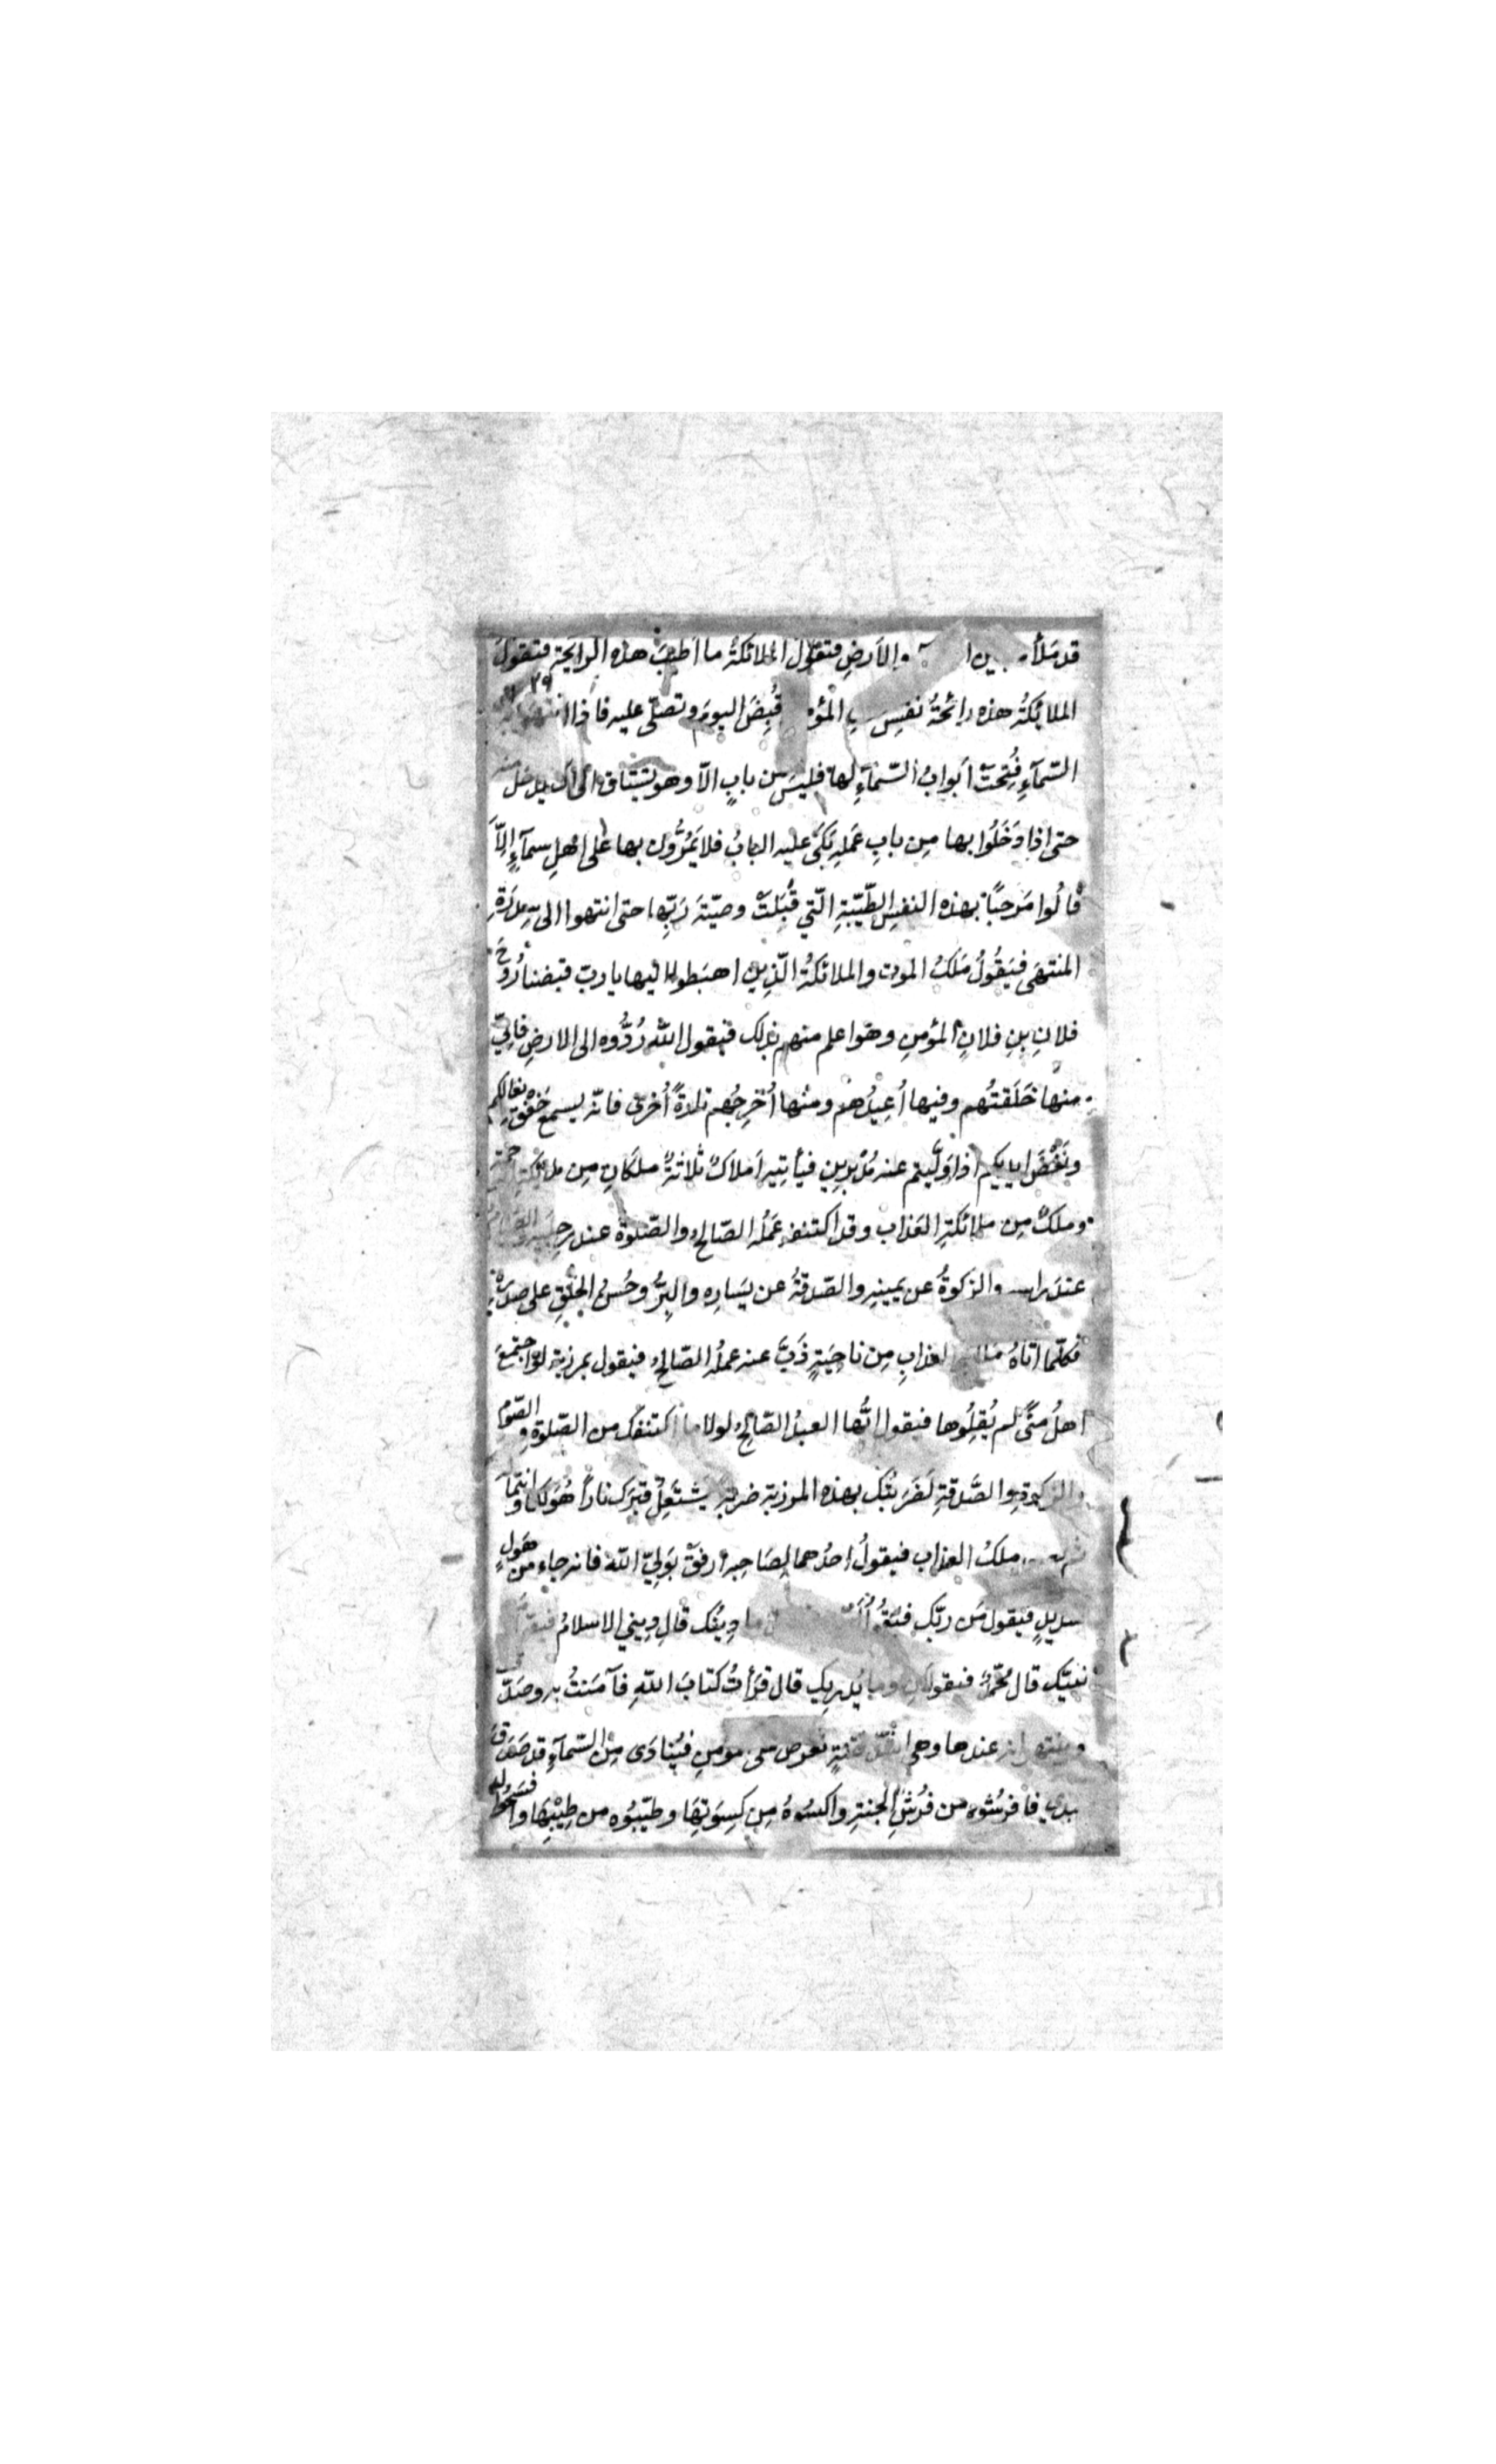 قد مَلأَ بين ا والاَرضِ فتقولُ الملائكةُ ما اَطيبَ هذه الرايحة فتقولُ
٢٩
الملائكةُ هذه رائحةُ نفسِ المؤ قُبِضَ اليومَ وتصلّى عليه فاذا انتهوا
السّمآءِ فُتِحتْ اَبوابُ السّمآءِ لها فليسَ من بابٍ الاّ وهو يشتاق الى ان يدخل منه
حتى اذا دَخَلُوا بها مِن بابِ عَمَلِهِ بَكَى عليه البابُ فلا يَمُرُّون بها على اهلِ سمآءٍ اِلاَّ
قالُوا مَرحَبًا بهذه النفسِ الطَّيِّبَةِ الّتي قُبِلَتْ وصيّةَ رَبِّها حتى انتهوا الى سِدرَةِ
المنتهَى فيَقُولُ مَلَكُ الموت والملائكةُ الّذين اهبَطوا اليها يا ربّ قبضنا رُوحَ
فلانِ بنِ فلانٍ المؤمنِ وهو اعلم منهم بذلك فيقول اللّه رُدُّوه الى الارضِ فاِنّي
منها خَلَقتُهم وفيها اُعِيدُهُم ومنها اُخرِجُهم تارةً اُخرى فانّه يسمع خَفْقَ نعالكم
ونَفْضَ ايديكم اذا وَلَّيتم عنه مُدْبِرين فيأتيه اَملاكٌ ثلاثةٌ ملَكانِ مِن ملائكةِ الرحمة
وملكٌ مِن ملائكةِ العَذاب وقد اكتنفه عَمَلُه الصّالحُ والصّلوة عند رِجليه والصّيام
عندَ راسه والزكوةُ عن يمينِه والصّدقةُ عن يَسارِه والبِرُّ وحُسْنُ الخُلقِ على صدرِه
فكلّما اتاهُ مَلَك العذابِ مِن ناحِيَةٍ ذَبَّ عنه عملُه الصّالحُ فيقول بمرزبةٍ لو اجتمعَ
اهلُ مِنًى لم يُقِلُّوها فيقول ايُّها العبدُ الصّالحُ لولا ما اكتنفك من الصّلوةِ والصّومِ
والزكوةِ والصَّدقةِ لَضَرَبتُك بهذه المرزبة ضربةً يَشتَعِلُ قبرُك نارًا هُوَ لكما وانتما
ثم ملكُ العذاب فيقولُ احدُهما لِصَاحبه ارفقْ بوَليِّ اللّه فانه جاء من هَولٍ
شديدٍ فيقول مَن ربّك فيَقُولُ ما دِينُك قال دِيني الاسلامُ فيقولُ
نبيّك قال مُحَمَّدٌ فيقولانِ وما يُدريك قال قرَأتُ كتابَ اللّهِ فآمَنتُ به وصَدّ
قت
وينتهرانه عندها وهي اشدّ فتنةٍ تعرض على مؤمنٍ فيُنادَى مِن السّمآءِ قد صَدَقَ
عبدي فافرشُوه من فُرُشِ الجنةِ واكسُوهُ مِن كِسوَتِها وطيّبُوه من طِيْبِها وا